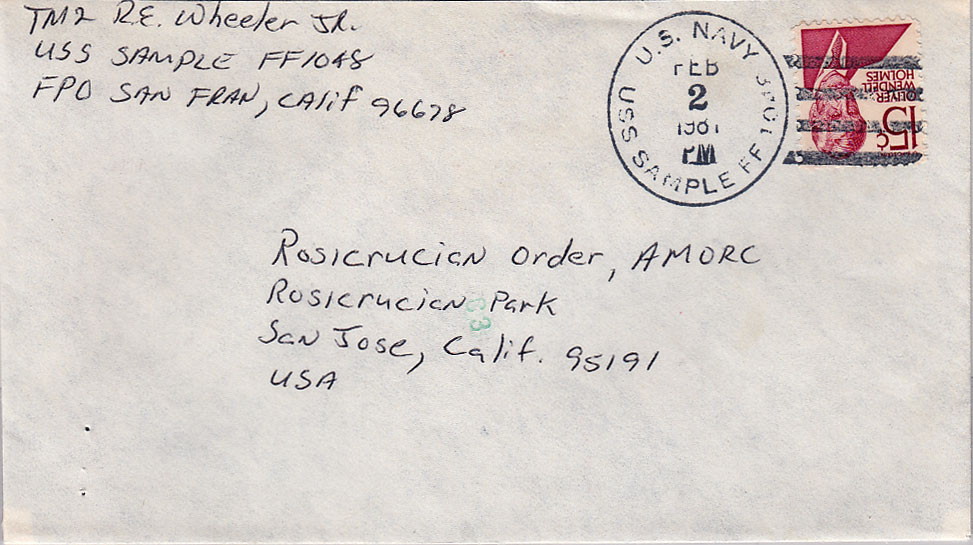 TM2 R.E. Wheeler JR.
USS SAMPLE FF1048
FPO SAN FRAN, CALIF 96678
U.S. NAVY
FEB
2
1981
PM
USS SAMPLE FF 1048
OLIVER
WENDELL
HOLMES
15c
Rosicrucian Order, AMORC
Rosicrucian Park
San Jose, Calif. 95191
USA
63